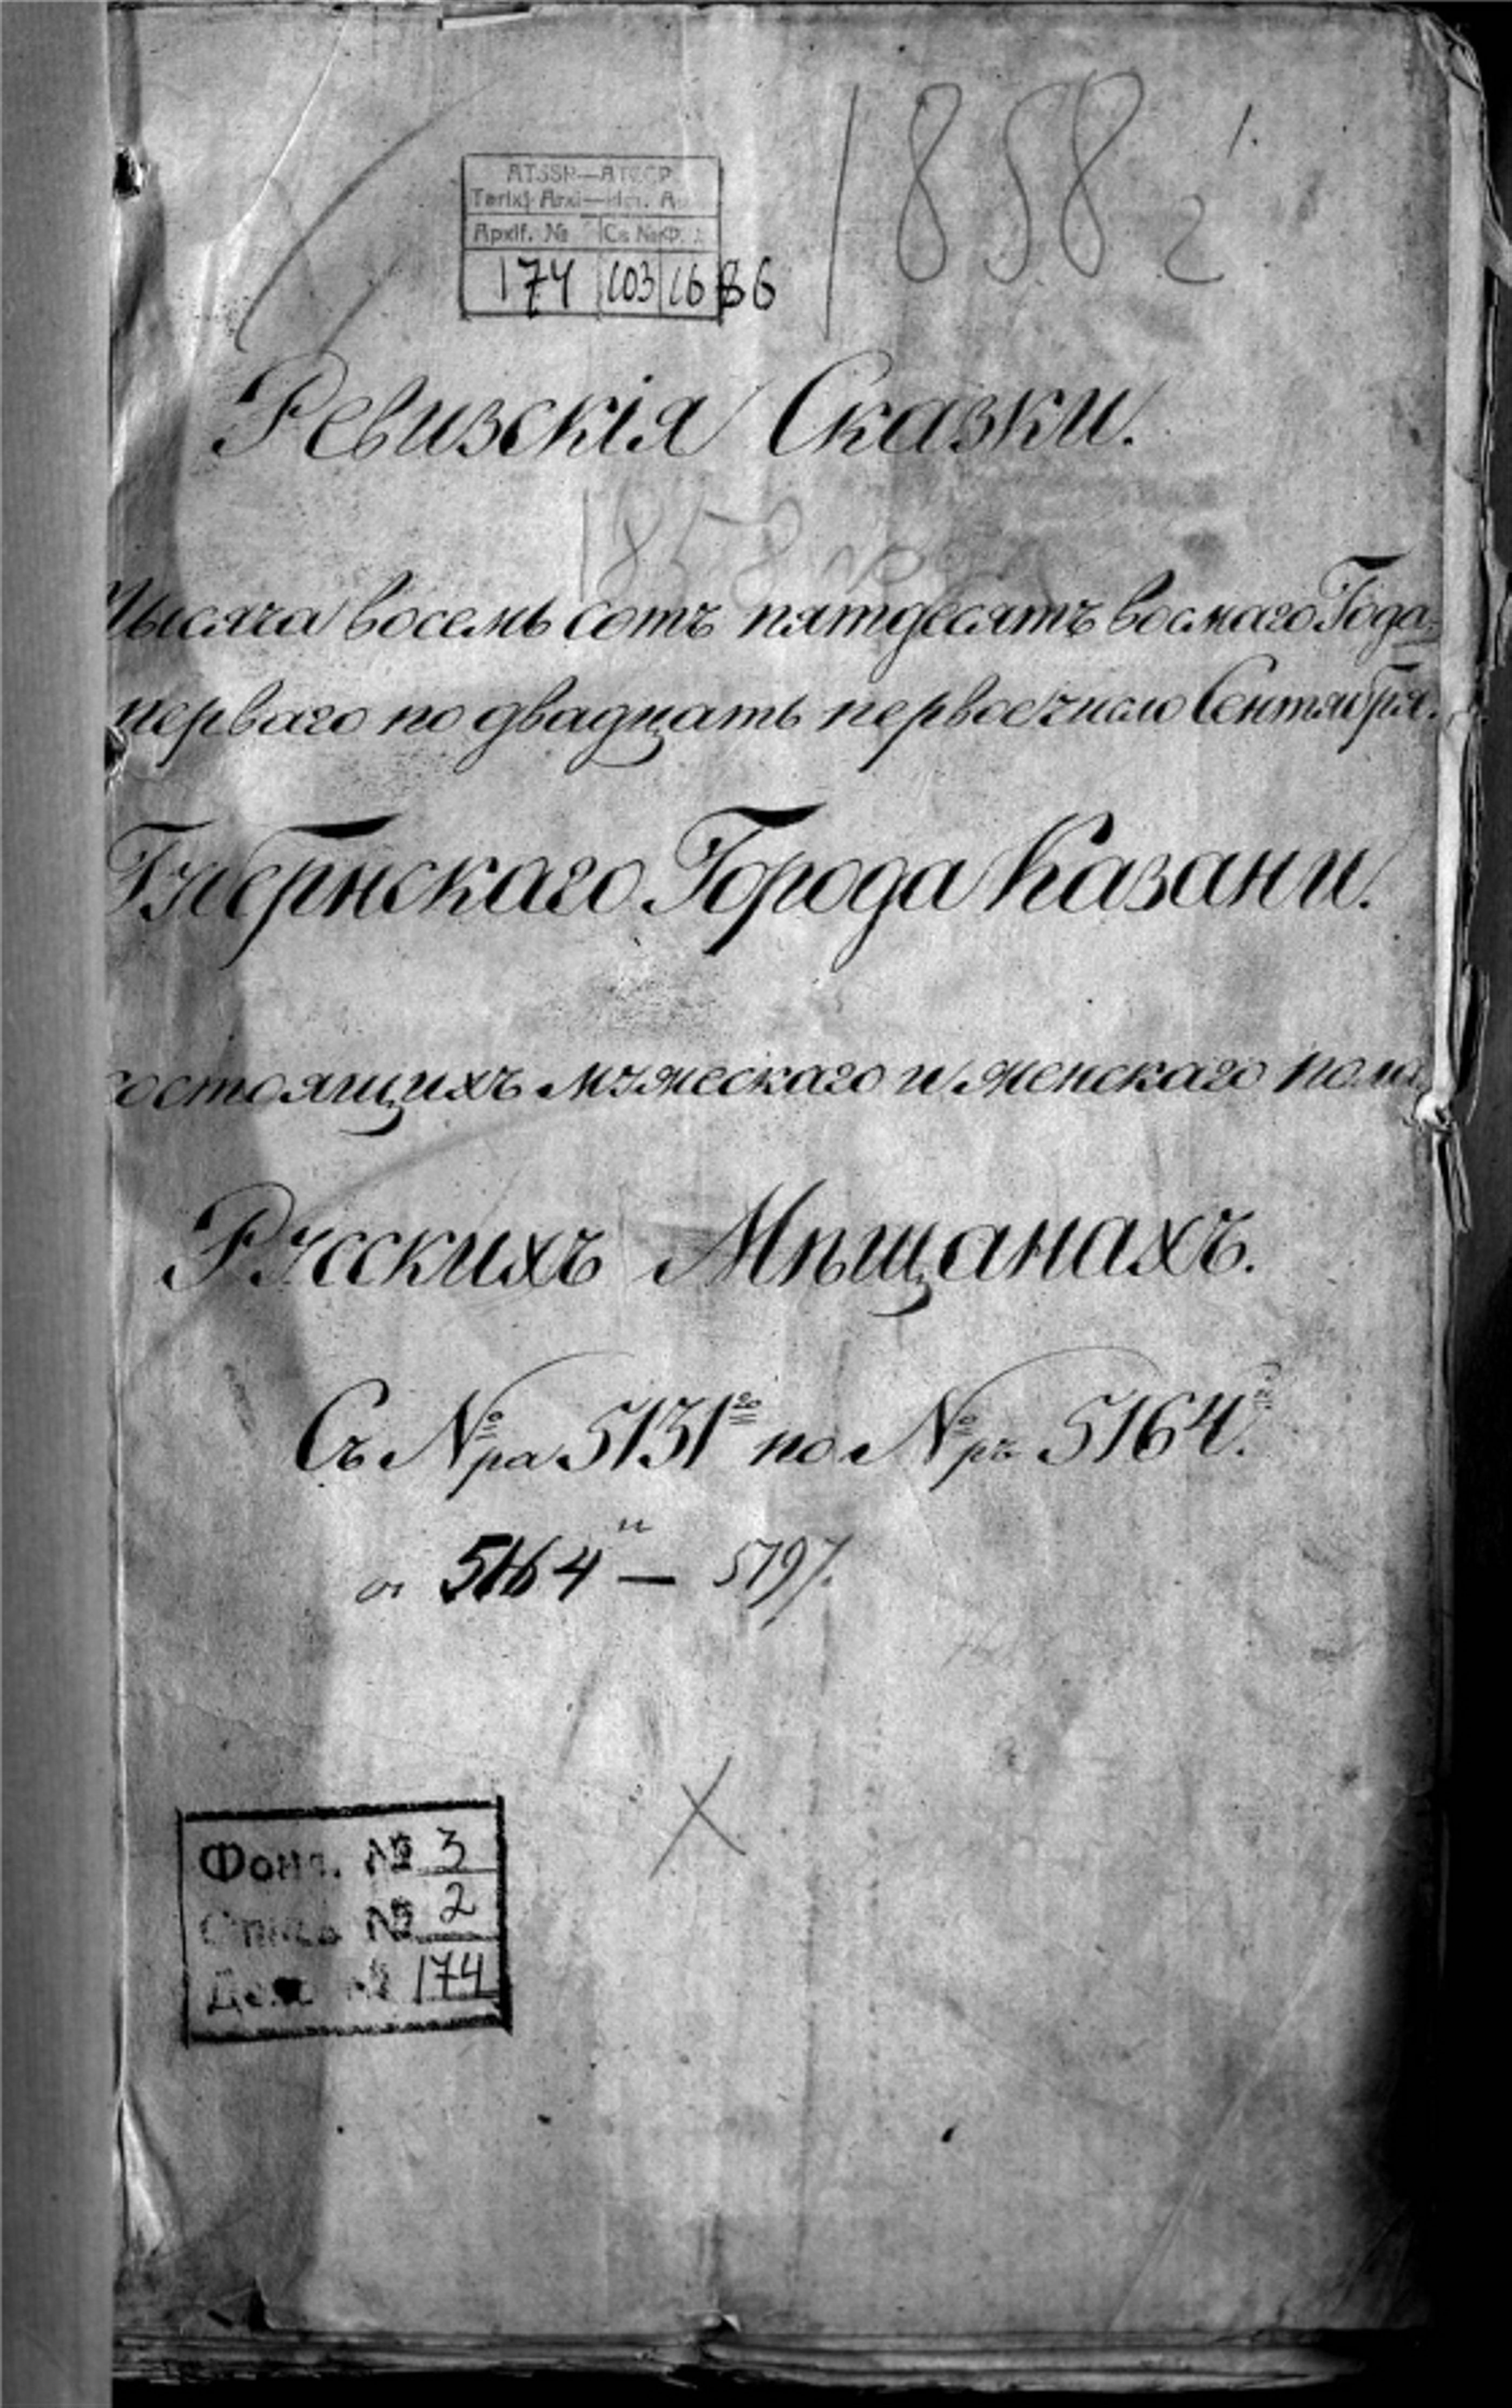 1858 г.
1.
ATSSR—АТССР
Tarixj Arxi—Ист. Ар
Арxif. № Св № Ф.
174 103 16 86
Ревизскія Сказки.
1858 года
Тысяча восемь сотъ пятдесятъ восмаго Года,
перваго по двадцать первое число Сентября.
Губернскаго Города Казани.
состоящихъ мужескаго и женскаго пола
Русскихъ Мѣщанахъ.
Съ №ра 5131го по №ръ 5164й.
5164 — 5797.
Фонд. № 3
Опись № 2
Дело № 174